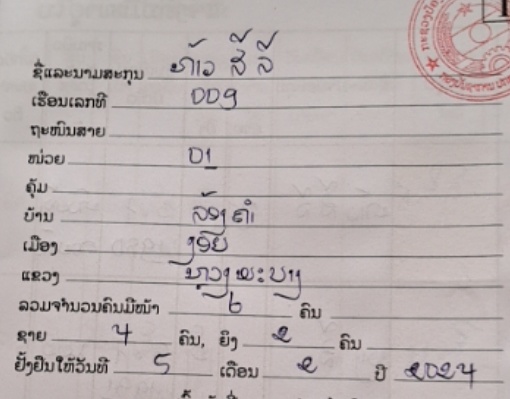 ຊື່ແລະນາມສະກຸນ ທ້າວ ສີ ລີ
ເຮືອນເລກທີ 009
ຖະໜົນສາຍ
ໜ່ວຍ 01
ຄຸ້ມ
ບ້ານ ລ້ອງຄໍາ
ເມືອງ ງອຍ
ແຂວງ ຫຼວງພະບາງ
ລວມຈຳນວນຄົນມີໜ້າ 6 ຄົນ
ຊາຍ 4 ຄົນ, ຍິງ 2 ຄົນ
ຢັ້ງຢືນໃຫ້ວັນທີ 5 ເດືອນ 2 ປີ 2024